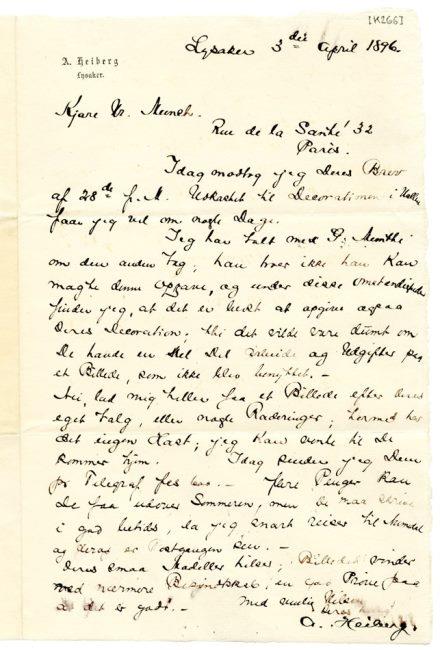 [K266]
A. Heiberg
Lysaker.
Lysaker 3die April 1896.
Kjære Hr. Munch.
Rue de la Santé 32
Paris.
Idag modtog jeg Deres Brev
af 28de f. M. Udkastet til Decorationen i Hallen
faar jeg vel om nogle Dage.
Jeg har talt med G. Munthe
om den anden Væg; han tror ikke han kan
magte denne Opgave, og under disse Omstændigheder
finder jeg, at det er bedst at opgive ogsaa
Deres Decoration; thi det vilde være dumt om
De havde en Hel Del Arbeide og Udgifter paa
et Billede, som ikke blev benyttet. –
Nei, lad mig heller faa et Billede efter Deres
eget Valg, eller nogle Raderinger; hermed har
det ingen Hast; jeg kan vente til De
kommer hjem. Idag sender jeg Dem
pr Telegraf fcs – flere Penger kan
De faa udover Sommeren, men De maa skrive
i god betids, da jeg snart reiser til
og derfra er Postgangen sen. –
Deres smaa Modeller hilser; Billedet vinder
ved nærmere Bekjendtskab, en god Prøve paa
at det er godt. – Med venlig Hilsen
Deres
A. Heiberg.